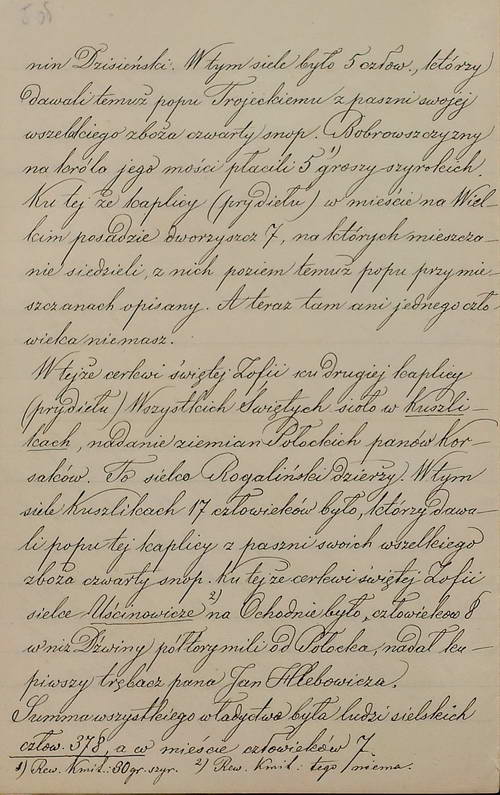 nin Dzisieński. W tym siele było 5 człow., którzy
dawali temuż popu Trojeckiemu z paszni swojej
wszelkiego zboża czwarty snop. Bobrowszczyzny
na króla jego mości płacili 5 ¹) groszy szyrokich.
Ku tej że kaplicy (prydiełu) w mieście na Wiel-
kim posadzie dworzyszcz 7, na których mieszcza-
nie siedzieli, a z nich poziem temuż popu przy mie-
szczanach opisany. A teraz tam ani jednego czło-
wieka niemasz.
W tejże cerkwi świętej Zofii ku drugiej kaplicy
(prydiełu) Wszystkich Świętych sioło w Kuszli-
kach, nadanie ziemian Połockich panów Kor-
saków. To sielco Rogaliński dzierży. W tym
siele Kuszlikach 17 człowieków było, którzy dawa-
li popu tej kaplicy z paszni swoich wszelkiego
zboża czwarty snop. Ku tejże cerkwi świętej Zofii
sielce Uścinowicze ²) na Ochodnie było, człowieków 8
w niz Dźwiny półtory mili od Połocka, nadał ku-
piwszy trębacz pana Jan Hlebowicza.
Summa wszystkiego władyctwa była ludzi sielskich
człow. 378, a w mieście człowieków 7.
1) Rew. Kmit.: 30 gr. szyr. 2) Rew. Kmit.: tego niema.